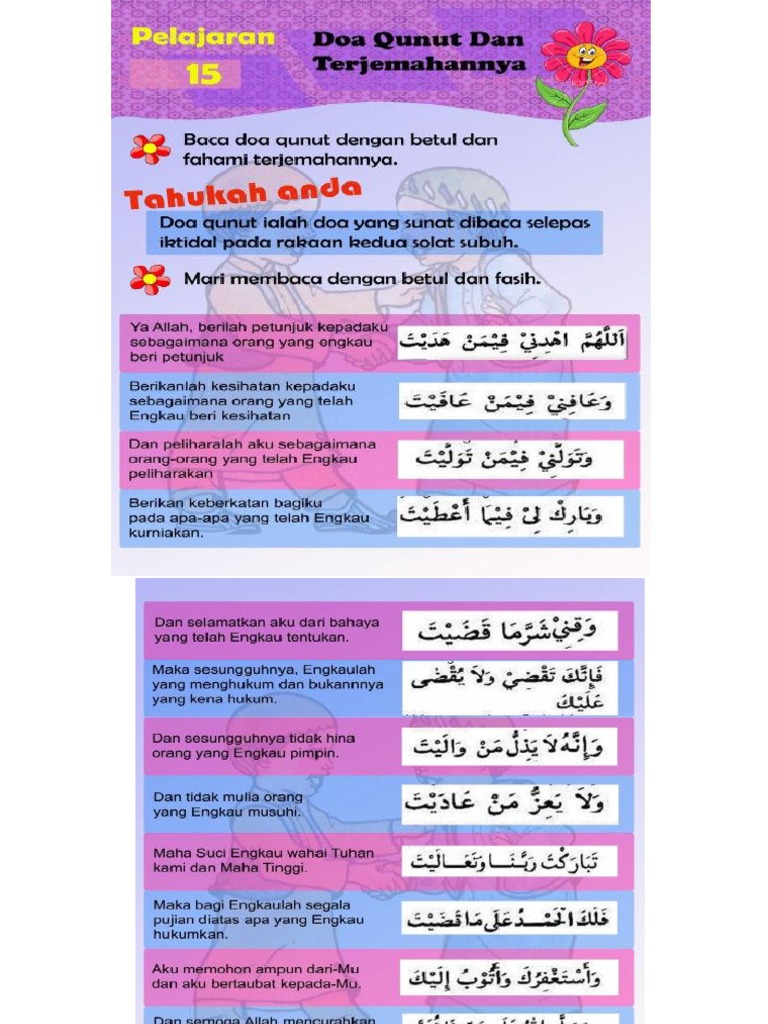 Pelajaran
15
Doa Qunut Dan
Terjemahannya
Baca doa qunut dengan betul dan
fahami terjemahannya.
Tahukah anda
Doa qunut ialah doa yang sunat dibaca selepas
iktidal pada rakaan kedua solat subuh.
Mari membaca dengan betul dan fasih.
Ya Allah, berilah petunjuk kepadaku
sebagaimana orang yang engkau
beri petunjuk
اَللّٰهُمَّ اهْدِنِيْ فِيْمَنْ هَدَيْتَ
Berikanlah kesihatan kepadaku
sebagaimana orang yang telah
Engkau beri kesihatan
وَعَافِنِيْ فِيْمَنْ عَافَيْتَ
Dan peliharalah aku sebagaimana
orang-orang yang telah Engkau
peliharakan
وَتَوَلَّنِيْ فِيْمَنْ تَوَلَّيْتَ
Berikan keberkatan bagiku
pada apa-apa yang telah Engkau
kurniakan.
وَبَارِكْ لِيْ فِيْمَا أَعْطَيْتَ
Dan selamatkan aku dari bahaya
yang telah Engkau tentukan.
وَقِنِيْ شَرَّمَا قَضَيْتَ
Maka sesungguhnya, Engkaulah
yang menghukum dan bukannnya
yang kena hukum.
فَإِنَّكَ تَقْضِيْ وَلاَ يُقْضٰى
عَلَيْكَ
Dan sesungguhnya tidak hina
orang yang Engkau pimpin.
وَإِنَّهُ لاَ يَذِلُّ مَنْ وَالَيْتَ
Dan tidak mulia orang
yang Engkau musuhi.
وَلاَ يَعِزُّ مَنْ عَادَيْتَ
Maha Suci Engkau wahai Tuhan
kami dan Maha Tinggi.
تَبَارَكْتَ رَبَّنَـــا وَتَعَـــالَيْتَ
Maka bagi Engkaulah segala
pujian diatas apa yang Engkau
hukumkan.
فَلَكَ الْحَمْـــدُ عَلَى مَا قَضَيْتَ
Aku memohon ampun dari-Mu
dan aku bertaubat kepada-Mu.
وَأَسْتَغْفِرُكَ وَأَتُوْبُ إِلَيْكَ
Dan semoga Allah mencurahkan